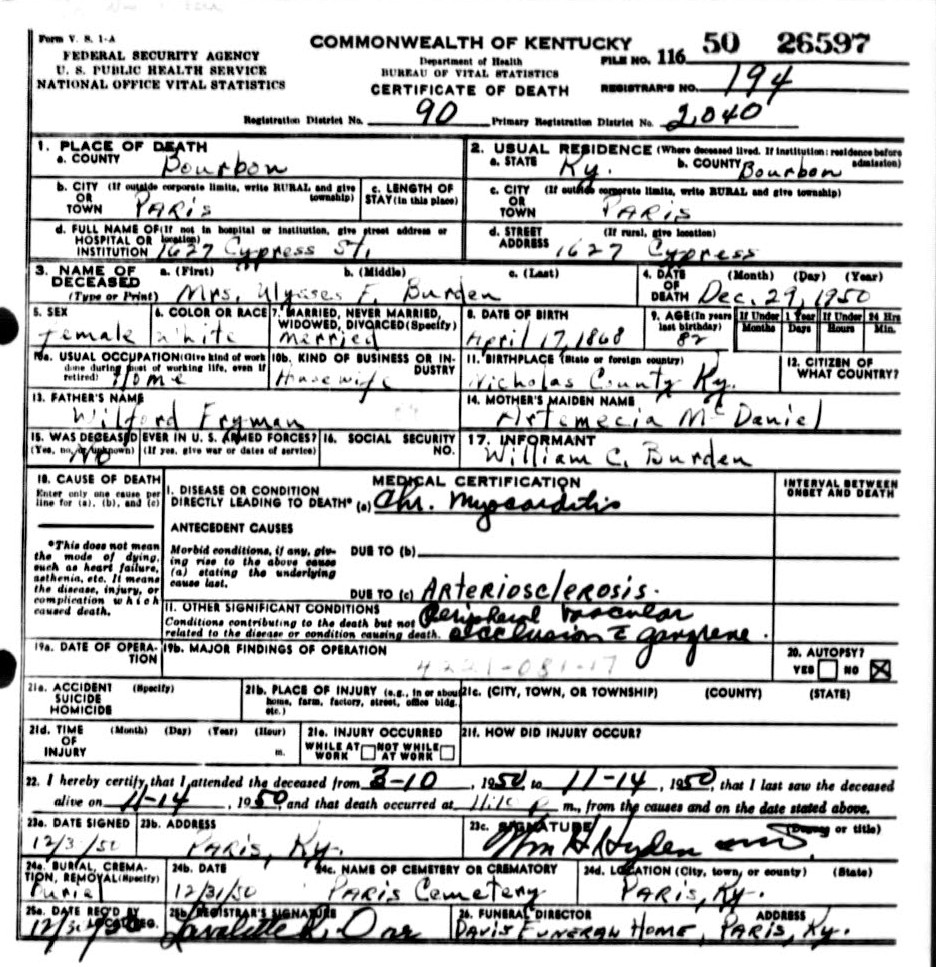 Form V. S. 1-A
FEDERAL SECURITY AGENCY
U. S. PUBLIC HEALTH SERVICE
NATIONAL OFFICE VITAL STATISTICS
COMMONWEALTH OF KENTUCKY
Department of Health
BUREAU OF VITAL STATISTICS
CERTIFICATE OF DEATH
FILE NO. 116 50 26597
REGISTRAR'S NO. 194
Registration District No. 90 Primary Registration District No. 2040
1. PLACE OF DEATH
a. COUNTY Bourbon
2. USUAL RESIDENCE (Where deceased lived. If institution: residence before admission)
a. STATE Ky. b. COUNTY Bourbon
b. CITY (If outside corporate limits, write RURAL and give township)
OR
TOWN PARIS
c. LENGTH OF
STAY (in this place)
c. CITY (If outside corporate limits, write RURAL and give township)
OR
TOWN PARIS
d. FULL NAME OF (If not in hospital or institution, give street address or location)
HOSPITAL OR
INSTITUTION 1627 Cypress St.
d. STREET (If rural, give location)
ADDRESS 1627 Cypress
3. NAME OF DECEASED a. (First) b. (Middle) c. (Last)
(Type or Print) Mrs. Ulysses F. Burden
4. DATE OF DEATH (Month) (Day) (Year)
Dec. 29, 1950
5. SEX
female
6. COLOR OR RACE
White
7. MARRIED, NEVER MARRIED, WIDOWED, DIVORCED (Specify)
Merried
8. DATE OF BIRTH
April 17, 1868
9. AGE (In years last birthday)
82
If Under 1 Year
Months Days
If Under 24 Hrs
Hours Min.
10a. USUAL OCCUPATION (Give kind of work done during most of working life, even if retired)
Home
10b. KIND OF BUSINESS OR INDUSTRY
Housewife
11. BIRTHPLACE (State or foreign country)
Nicholas County Ky.
12. CITIZEN OF WHAT COUNTRY?
13. FATHER'S NAME
Wilford Fryman
14. MOTHER'S MAIDEN NAME
Artemecia McDaniel
15. WAS DECEASED EVER IN U. S. ARMED FORCES?
(Yes, no, or unknown) (If yes, give war or dates of service)
No
16. SOCIAL SECURITY NO.
17. INFORMANT
William C. Burden
18. CAUSE OF DEATH
Enter only one cause per line for (a), (b), and (c)
MEDICAL CERTIFICATION
INTERVAL BETWEEN ONSET AND DEATH
I. DISEASE OR CONDITION
DIRECTLY LEADING TO DEATH* (a) Chr. Myocarditis
*This does not mean the mode of dying, such as heart failure, asthenia, etc. It means the disease, injury, or complication which caused death.
ANTECEDENT CAUSES
Morbid conditions, if any, giving rise to the above cause (a) stating the underlying cause last.
DUE TO (b)
DUE TO (c) Arteriosclerosis.
II. OTHER SIGNIFICANT CONDITIONS
Conditions contributing to the death but not related to the disease or condition causing death.
Peripheral vascular
occlusion c̄ gangrene.
19a. DATE OF OPERATION
19b. MAJOR FINDINGS OF OPERATION
4221-081-17
20. AUTOPSY?
YES NO
21a. ACCIDENT SUICIDE HOMICIDE (Specify)
21b. PLACE OF INJURY (e.g., in or about home, farm, factory, street, office bldg. etc.)
21c. (CITY, TOWN, OR TOWNSHIP) (COUNTY) (STATE)
21d. TIME OF INJURY (Month) (Day) (Year) (Hour) m.
21e. INJURY OCCURRED
WHILE AT WORK NOT WHILE AT WORK
21f. HOW DID INJURY OCCUR?
22. I hereby certify, that I attended the deceased from 3-10, 1950, to 11-14, 1950, that I last saw the deceased
alive on 11-14, 1950, and that death occurred at m., from the causes and on the date stated above.
23a. DATE SIGNED
23b. ADDRESS
PARIS, Ky.
23c. SIGNATURE (Degree or title)
Wm H Hyden MD.
24a. BURIAL, CREMATION, REMOVAL (Specify)
Burial
24b. DATE
12/31/50
24c. NAME OF CEMETERY OR CREMATORY
PARIS Cemetery
24d. LOCATION (City, town, or county) (State)
PARIS, Ky.
25a. DATE REC'D BY LOCAL REG.
25b. REGISTRAR'S SIGNATURE
26. FUNERAL DIRECTOR ADDRESS
DAVIS FUNERAL HOME, PARIS, Ky.